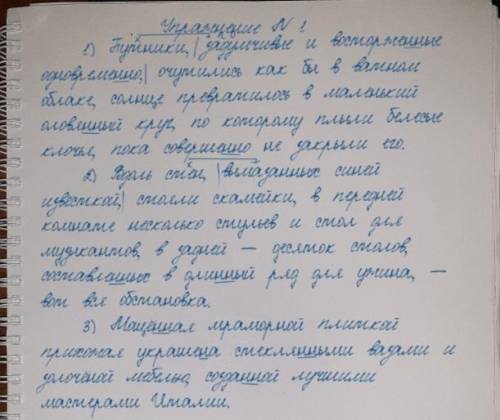 Упражнение N 1
1) Путники, | задумчивые и восторженные
одновременно, | очутились как бы в ватном
облаке, солнце превратилось в маленький
оловянный круг, по которому плыли белесые
клочья, пока совершенно не закрыли его.
2) Вдоль стен, | вымазанных синей
известкой, | стояли скамейки, в передней
комнате несколько стульев и стол для
музыкантов, в задней — десяток столов,
составленных в длинный ряд для ужина, —
вот вся обстановка.
3) Мощённая мраморной плиткой
прихожая украшена стеклянными вазами и
золочёной мебелью, созданной лучшими
мастерами Италии.